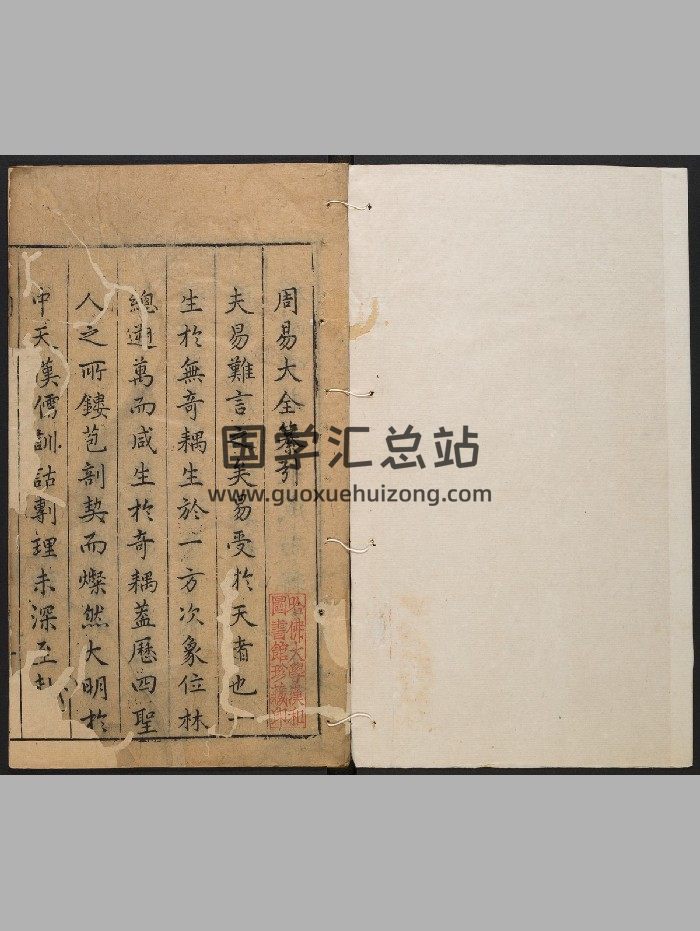 周易大全纂引
夫易難言之矣易受於天者也一
生於無奇耦生於一方次象位林
總遡萬而咸生於奇耦蓋歷四聖
人之所鏤苞剖契而燦然大明於
中天漢儒訓詁剸理未深至
哈佛大學漢和
圖書館珍藏印
国学汇总站
www.guoxuehuizong.com